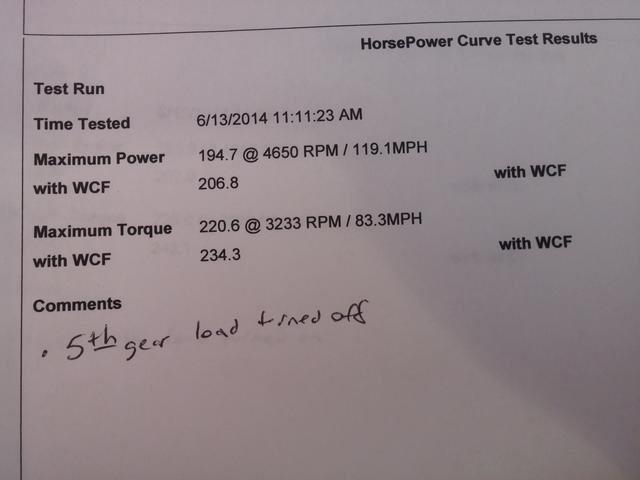 HorsePower Curve Test Results
Test Run
Time Tested 6/13/2014 11:11:23 AM
Maximum Power 194.7 @ 4650 RPM / 119.1MPH
with WCF 206.8 with WCF
Maximum Torque 220.6 @ 3233 RPM / 83.3MPH
with WCF 234.3 with WCF
Comments
• 5th gear load turned off